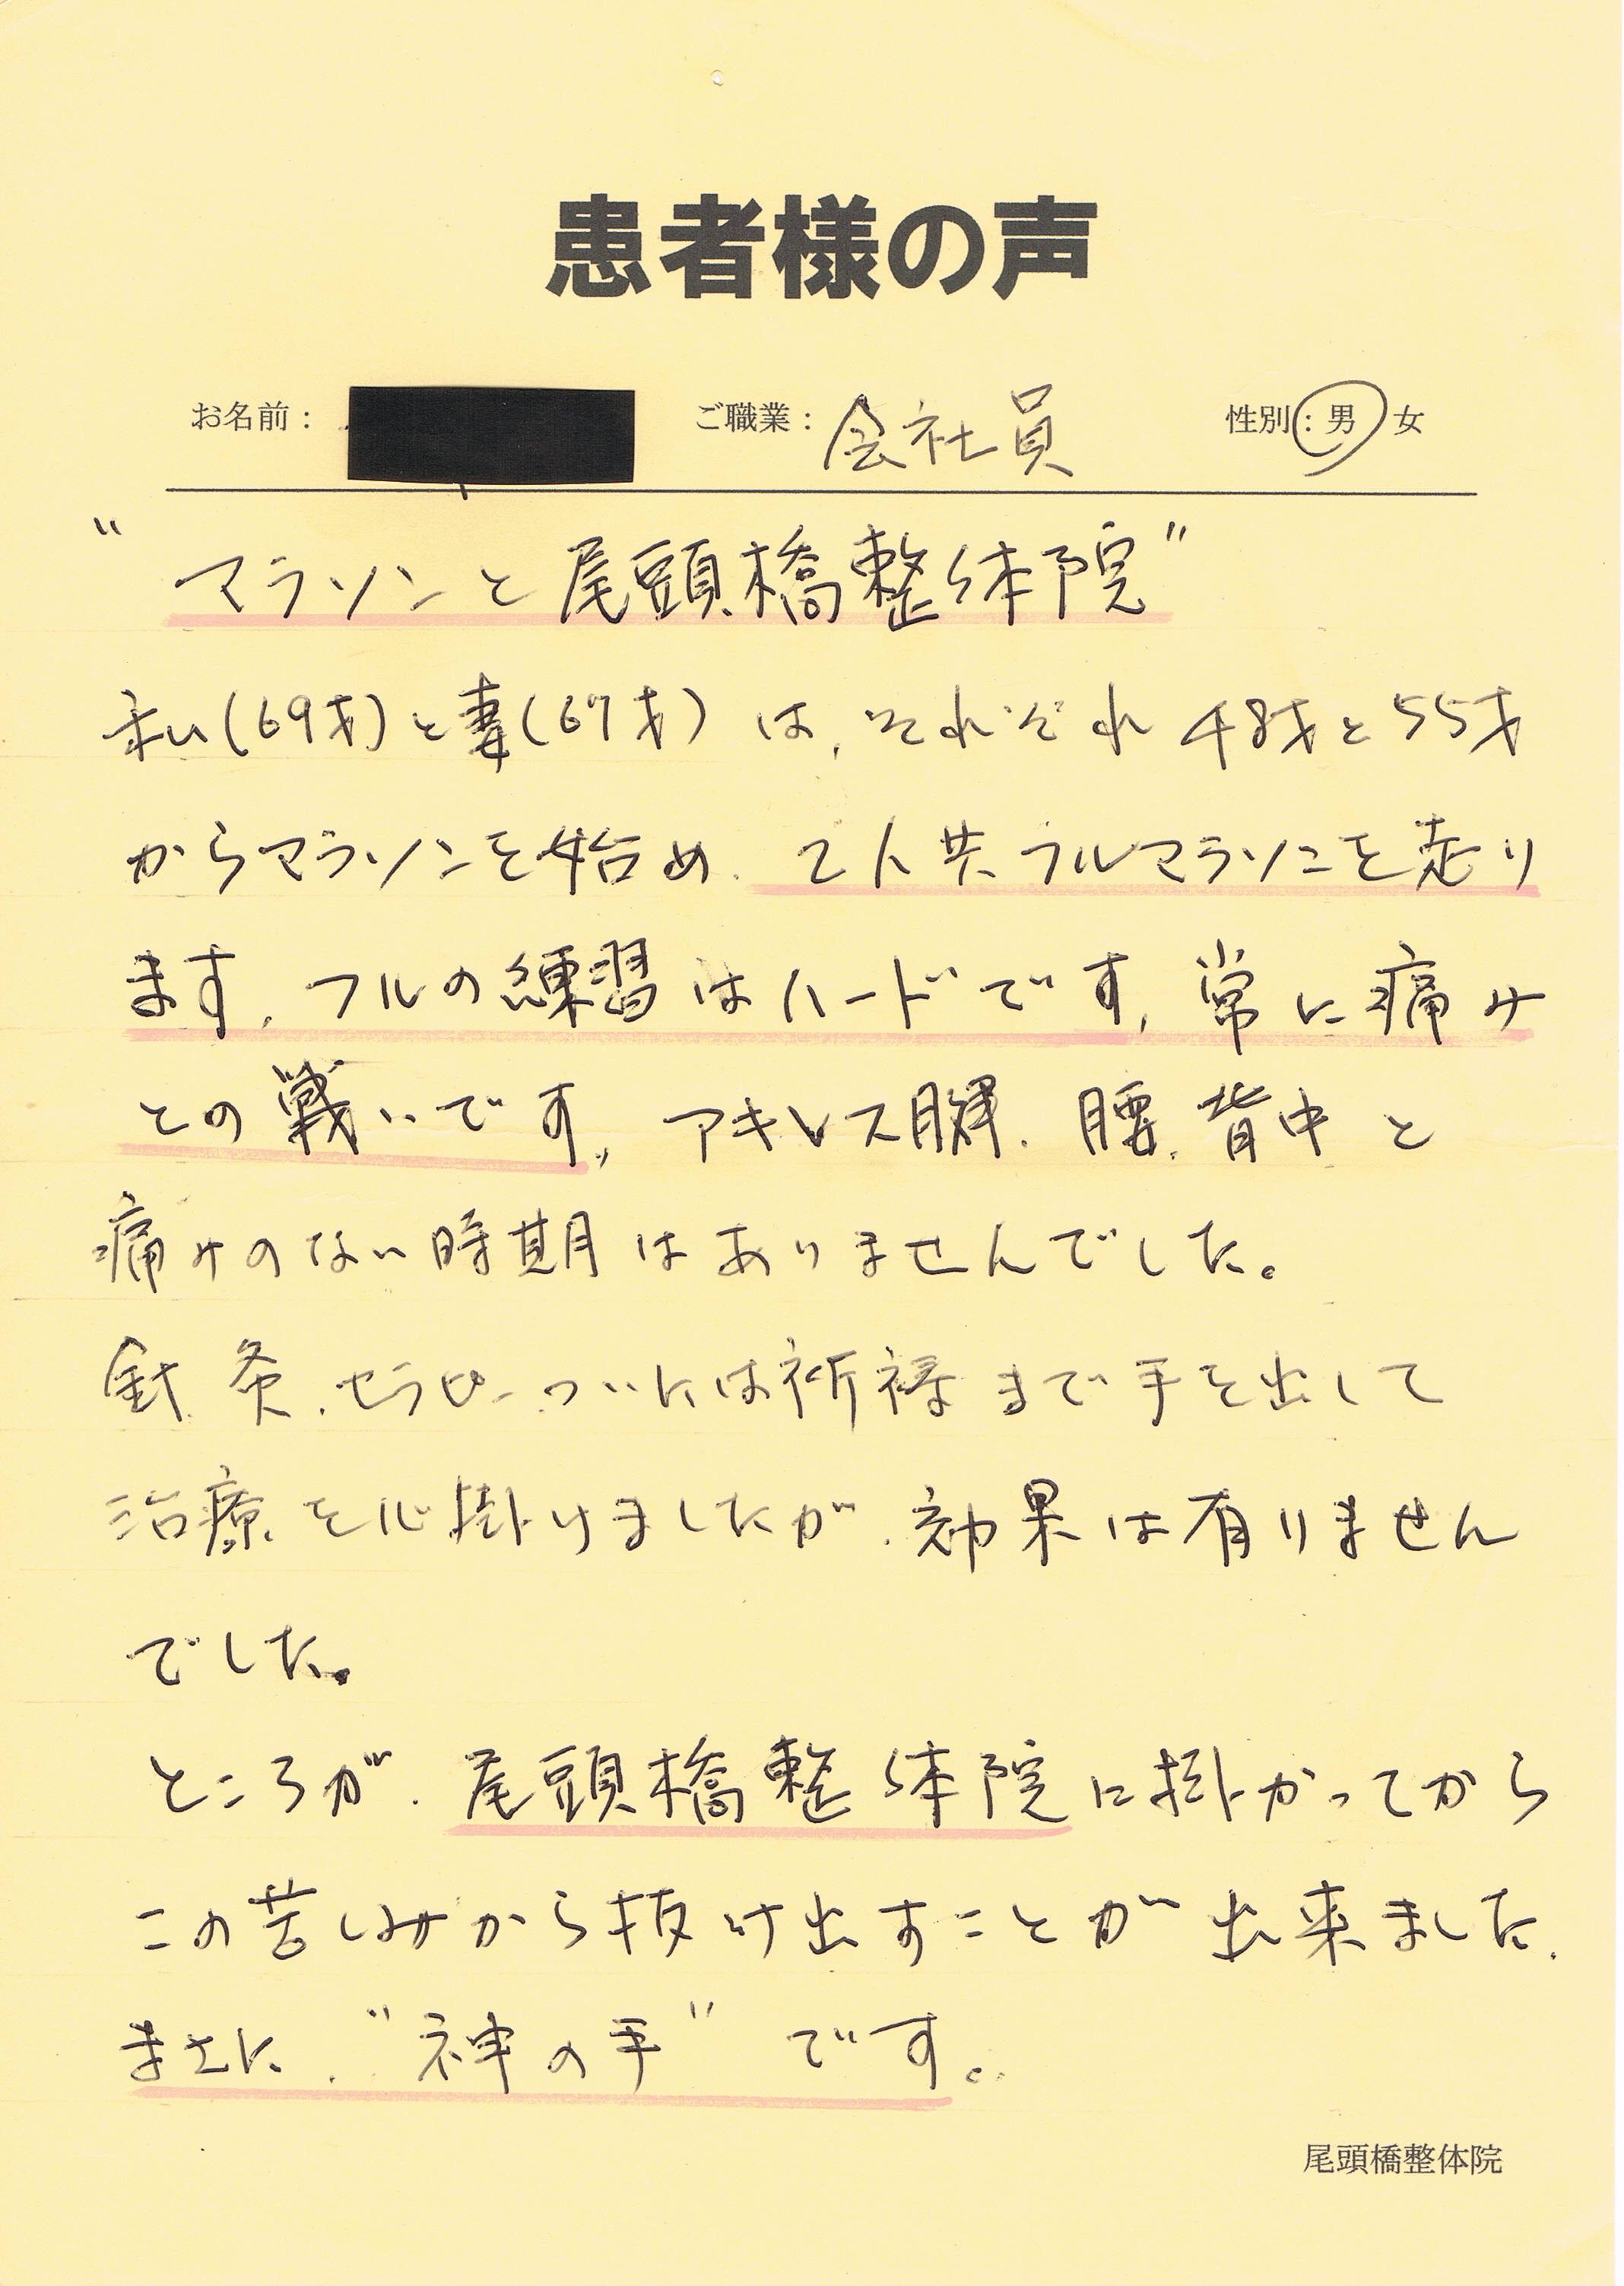 患者様の声
お名前： ご職業：会社員 性別：男 女
"マラソンと尾頭橋整体院"
私(69才)と妻(67才)は、それぞれ48才と55才
からマラソンを始め、2人共フルマラソンを走り
ます。フルの練習はハードです。常に痛み
との戦いです。アキレス腱、腰、背中と
痛みのない時期はありませんでした。
針、灸、セラピー、ついには祈祷まで手を出して
治療を心掛けましたが、効果は有りません
でした。
ところが、尾頭橋整体院に掛かってから
この苦しみから抜け出すことが出来ました。
まさに、"神の手"です。
尾頭橋整体院